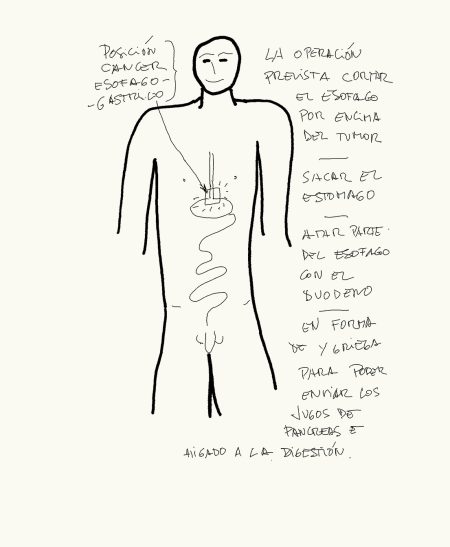 POSICIÓN
CANCER
ESOFAGO-
-GASTRICO
LA OPERACIÓN
PREVISTA CORTAR
EL ESOFAGO
POR ENCIMA
DEL TUMOR
SACAR EL
ESTOMAGO
ATAR PARTE
DEL ESOFAGO
CON EL
DUODENO
EN FORMA
DE Y GRIEGA
PARA PODER
ENVIAR LOS
JUGOS DE
PANCREAS E
HIGADO A LA DIGESTIÓN.